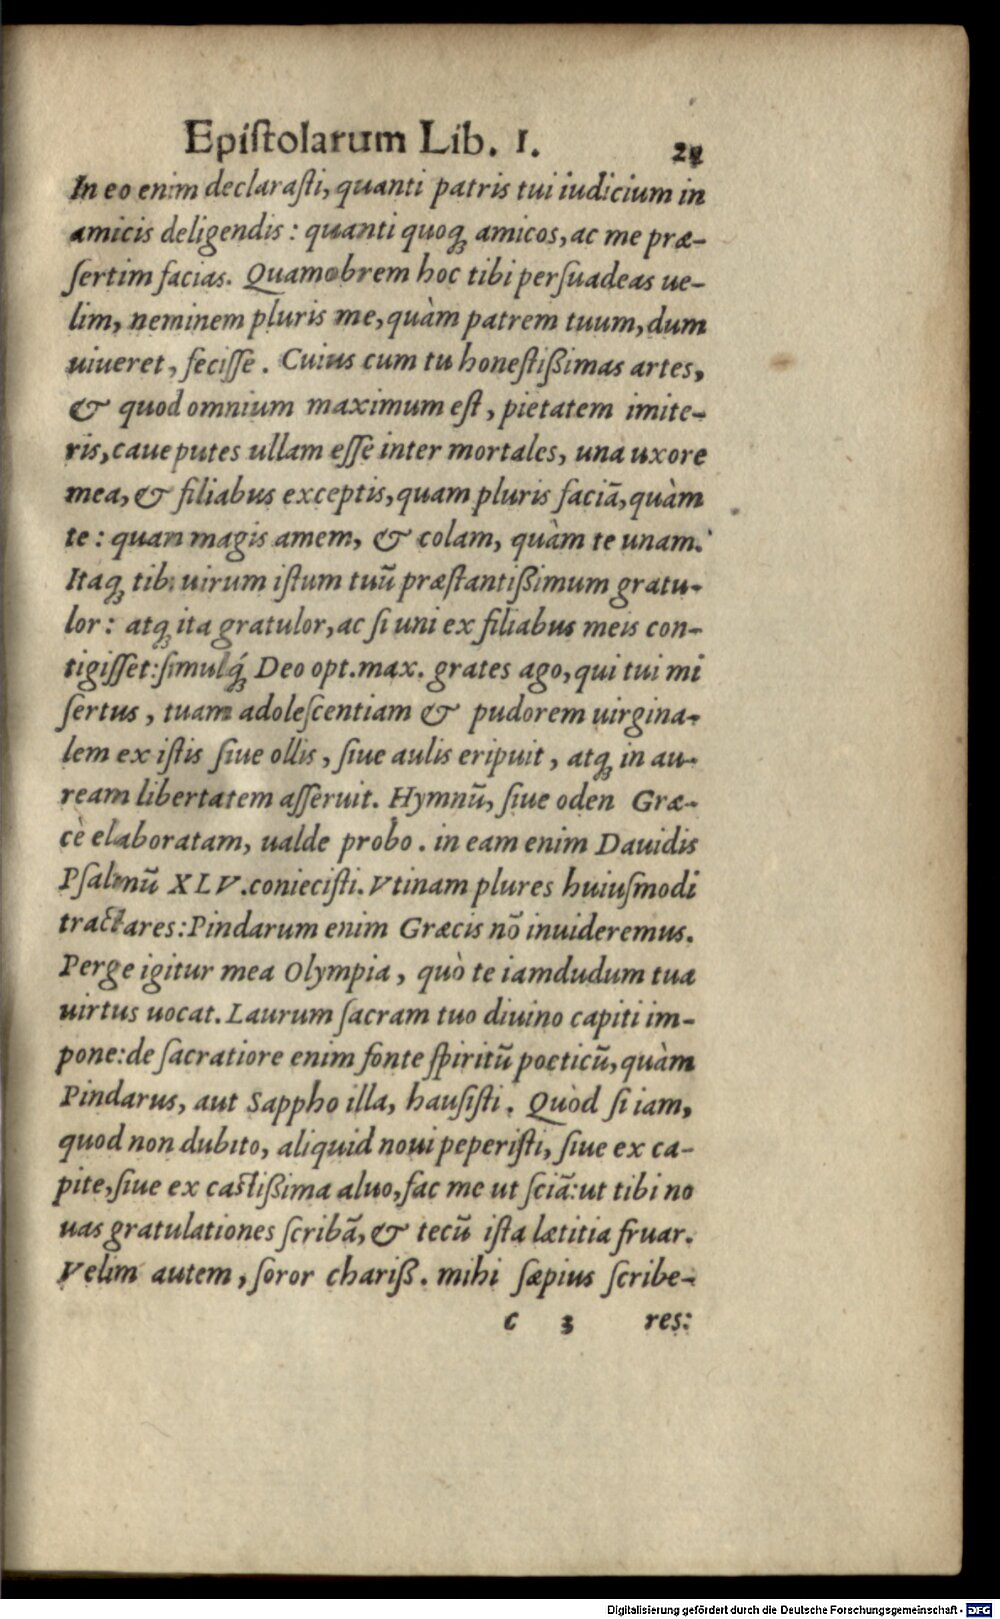 Epiſtolarum Lib. I. 21
In eo enim declaraſti, quanti patris tui iudicium in
amicis deligendis: quanti quoq; amicos, ac me præ-
ſertim facias. Quamobrem hoc tibi perſuadeas ue-
lim, neminem pluris me, quàm patrem tuum, dum
uiueret, feciſſe. Cuius cum tu honeſtißimas artes,
& quod omnium maximum eſt, pietatem imite-
ris, caue putes ullam eſſe inter mortales, una uxore
mea, & filiabus exceptis, quam pluris faciā, quàm
te: quam magis amem, & colam, quàm te unam.
Itaq; tibi uirum iſtum tuū præſtantißimum gratu-
lor: atq; ita gratulor, ac ſi uni ex filiabus meis con-
tigiſſet: ſimulq́; Deo opt. max. grates ago, qui tui mi
ſertus, tuam adoleſcentiam & pudorem uirgina-
lem ex iſtis ſiue ollis, ſiue aulis eripuit, atq; in au-
ream libertatem aſſeruit. Hymnū, ſiue oden Græ-
cè elaboratam, ualde probo. in eam enim Dauidis
Pſalmū XLV. conieciſti. Vtinam plures huiuſmodi
tractares: Pindarum enim Græcis nō inuideremus.
Perge igitur mea Olympia, quò te iamdudum tua
uirtus uocat. Laurum ſacram tuo diuino capiti im-
pone: de ſacratiore enim fonte ſpiritū poeticū, quàm
Pindarus, aut Sappho illa, hauſiſti. Quòd ſi iam,
quod non dubito, aliquid noui peperiſti, ſiue ex ca-
pite, ſiue ex caſtißima aluo, fac me ut ſciā: ut tibi no
uas gratulationes ſcribā, & tecū iſta lætitia fruar.
Velim autem, ſoror chariß. mihi ſæpius ſcribe-
c 3 res:
Digitalisierung gefördert durch die Deutsche Forschungsgemeinschaft - DFG